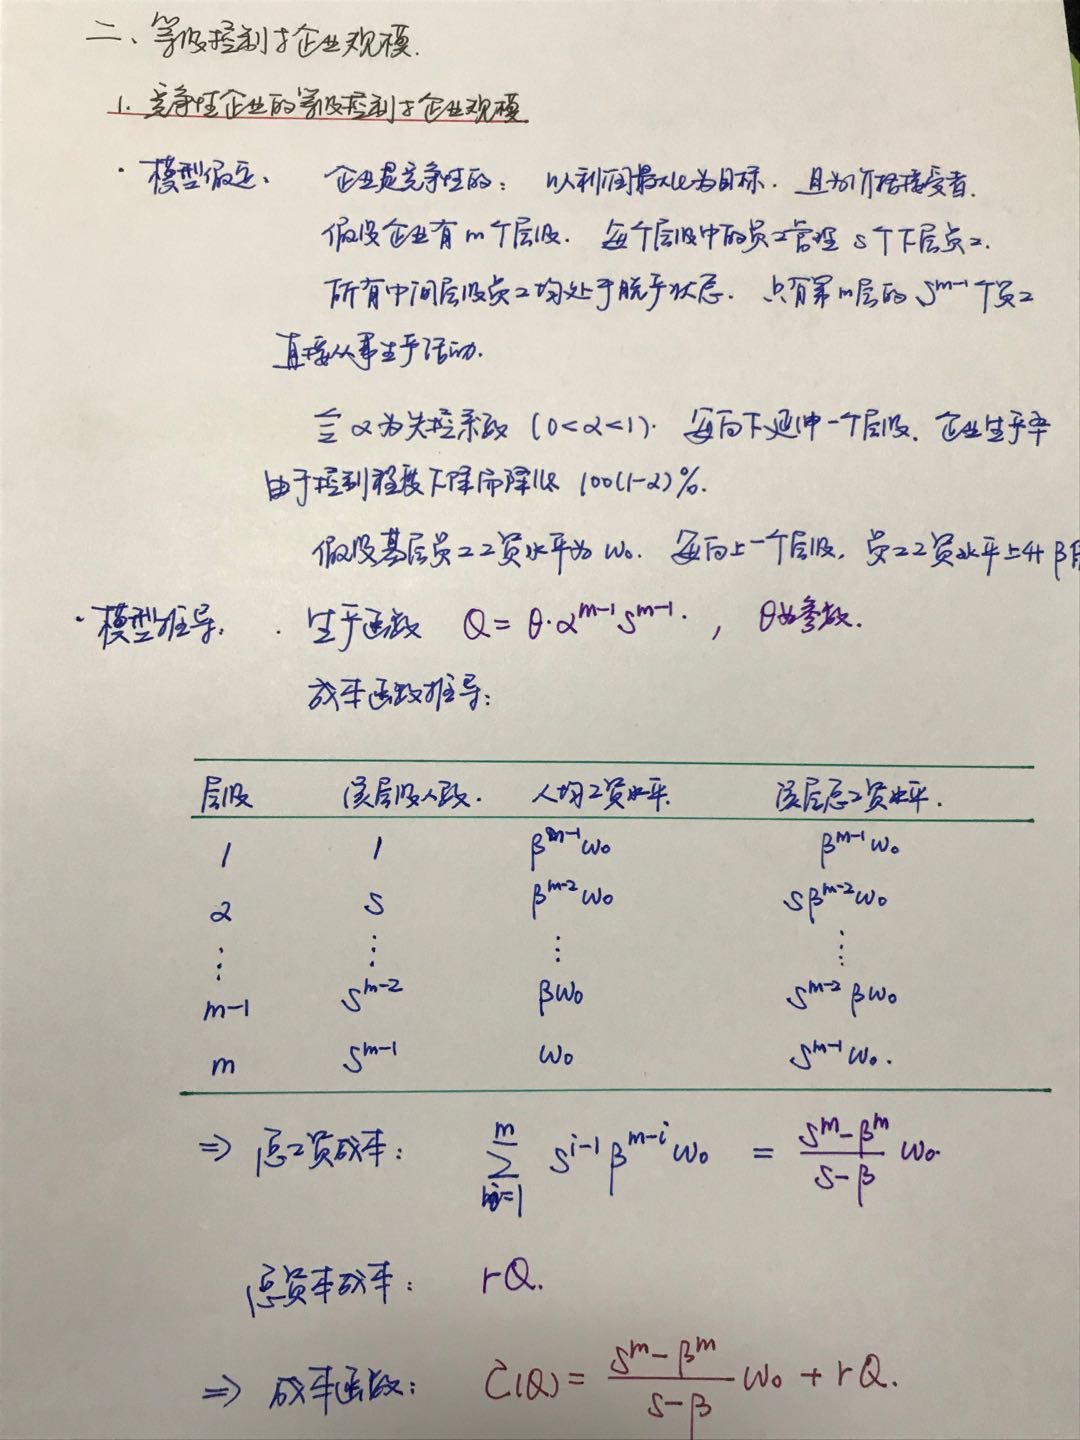 二、等级控制与企业规模.
1. 竞争性企业的等级控制与企业规模
· 模型假定: 企业是竞争性的: 以利润最大化为目标. 且为价格接受者.
假设企业有m个层级. 每个层级中的员工管理 s个下层员工.
所有中间层级员工均处于脱产状态. 只有第m层的 S^{m-1} 个员工
直接从事生产活动.
令 α为失控系数 (0<α<1). 每向下延伸一个层级, 企业生产率
由于控制程度下降而降低 100(1-α)%.
假设基层员工工资水平为 ω₀. 每向上一个层级, 员工工资水平上升 β倍
· 模型推导: · 生产函数 Q = θ·α^{m-1}S^{m-1}. , θ为参数.
成本函数推导:
层级 该层级人数. 人均工资水平. 该层总工资水平.
1 1 β^{m-1}ω₀ β^{m-1}ω₀
2 S β^{m-2}ω₀ Sβ^{m-2}ω₀
⋮ ⋮ ⋮ ⋮
m-1 S^{m-2} βω₀ S^{m-2}βω₀
m S^{m-1} ω₀ S^{m-1}ω₀.
⇒ 总工资成本: \sum_{i=1}^{m} S^{i-1}β^{m-i}ω₀ = \frac{S^m-β^m}{S-β} ω₀.
总资本成本: rQ.
⇒ 成本函数: C(Q) = \frac{S^m-β^m}{S-β} ω₀ + rQ.